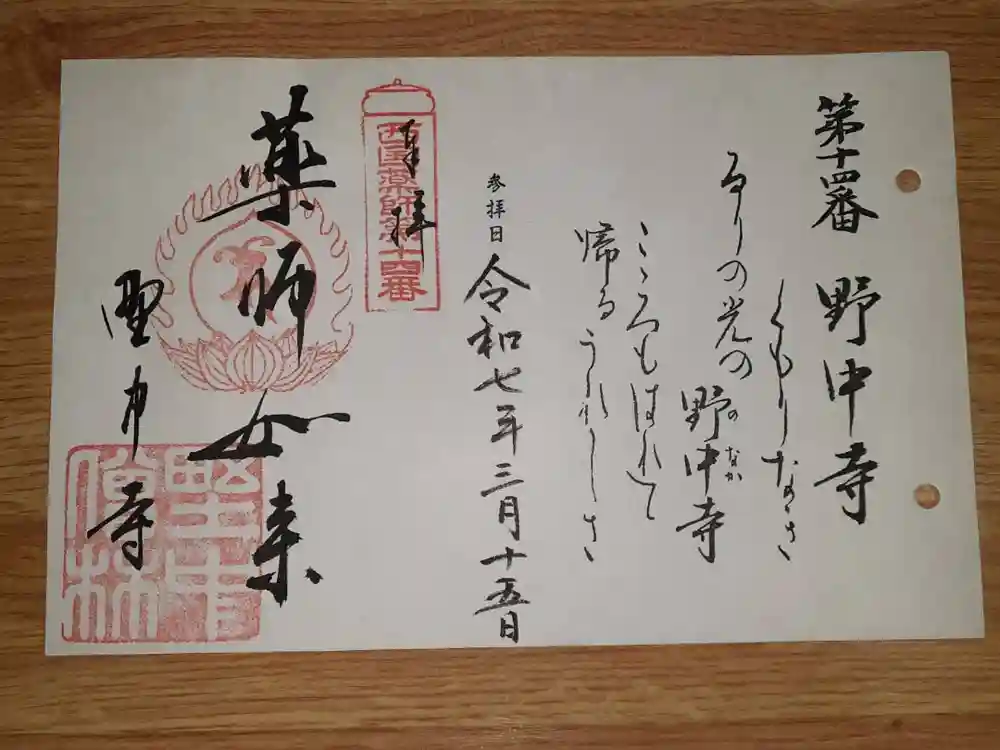 第十四番 野中寺
くもりなき
るりの光の野中寺
のなか
こゝろもはれて
帰るうれしさ
参拝日 令和七年三月十五日
奉拝
西国薬師第十四番
薬師如来
野中寺